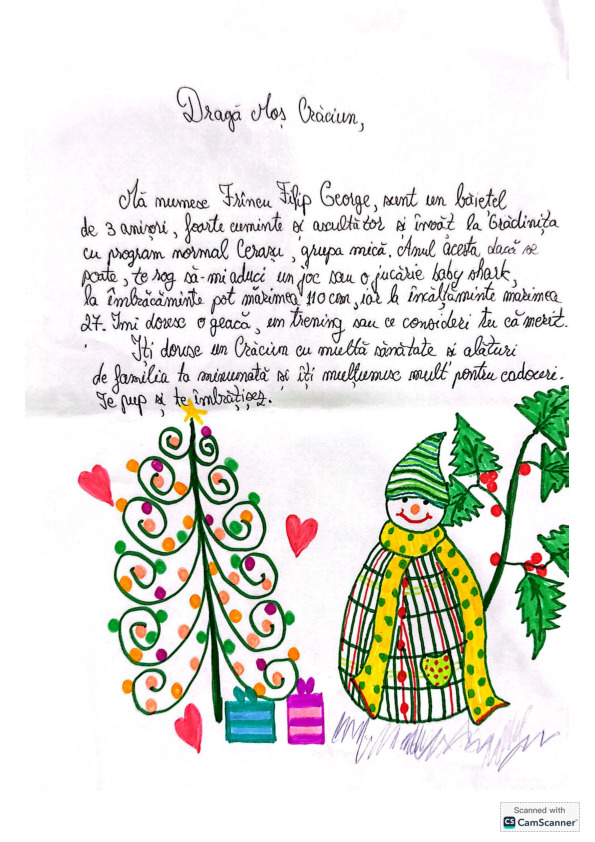 Dragă Moș Crăciun,
Mă numesc Frîncu Filip George, sunt un băiețel
de 3 anișori, foarte cuminte și ascultător și învăț la Grădinița
cu program normal Cerașu, grupa mică. Anul acesta, dacă se
poate, te rog să-mi aduci un joc sau o jucărie baby shark,
la îmbrăcăminte port mărimea 110 cm, iar la încălțăminte mărimea
27. Îmi doresc o geacă, un trening sau ce consideri tu că merit.
Îți doresc un Crăciun cu multă sănătate și alături
de familia ta minunată și îți mulțumesc mult pentru cadouri.
Te pup și te îmbrățișez.
Scanned with
CS CamScanner